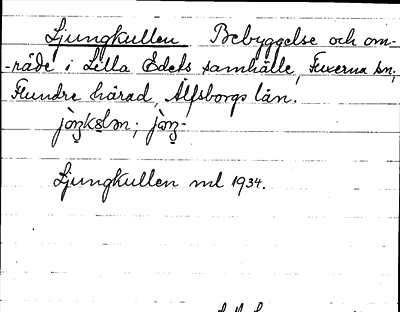 Ljungkullen Bebyggelse och om-
-råde i Lilla Edets samhälle, Fuxerna sn,
Flundre härad, Älfsborgs län.
Ljungkullen ml 1934.